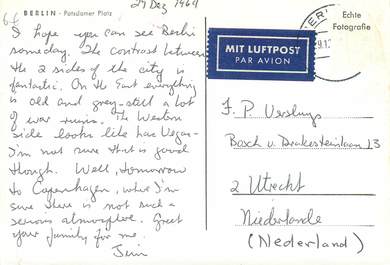 29 Dez 1964
BERLIN - Potsdamer Platz
I hope you can see Berlin
someday. The contrast between
the 2 sides of the city is
fantastic. On the East everything
is old and grey - still a lot
of war ruins. The Western
side looks like Las Vegas -
I'm not sure that is good
though. Well, tomorrow
to Copenhagen, where I'm
sure there is not such a
serious atmosphere. Greet
your family for me.
Jim
Echte
Fotografie
MIT LUFTPOST
PAR AVION
F. P. Versluys
Bosch v. Drakesteinlaan 13
2 Utrecht
Niederlande
(Nederland)